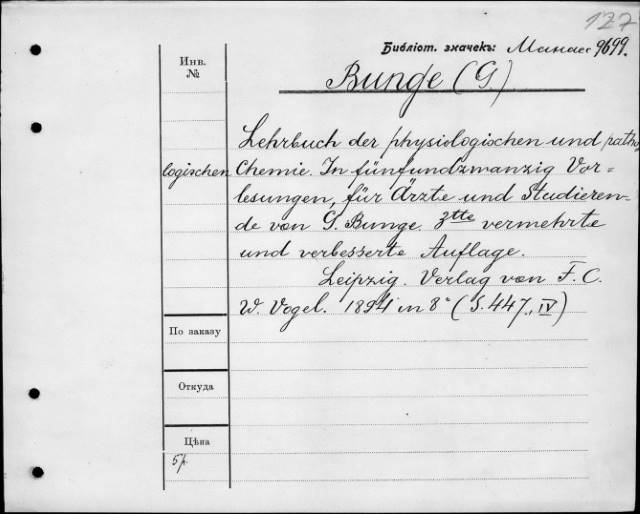 127
Библіот. значекъ: Манас 9699.
Инв.
№
Bunge (G.)
Lehrbuch der physiologischen und patho
logischen Chemie. In fünfundzwanzig Vor=
lesungen, für Ärzte und Studieren-
de von G. Bunge. 3tte vermehrte
und verbesserte Auflage.
Leipzig. Verlag von F. C.
W. Vogel. 1894 in 8° (S. 447., IV)
По заказу
Откуда
Цѣна
5р